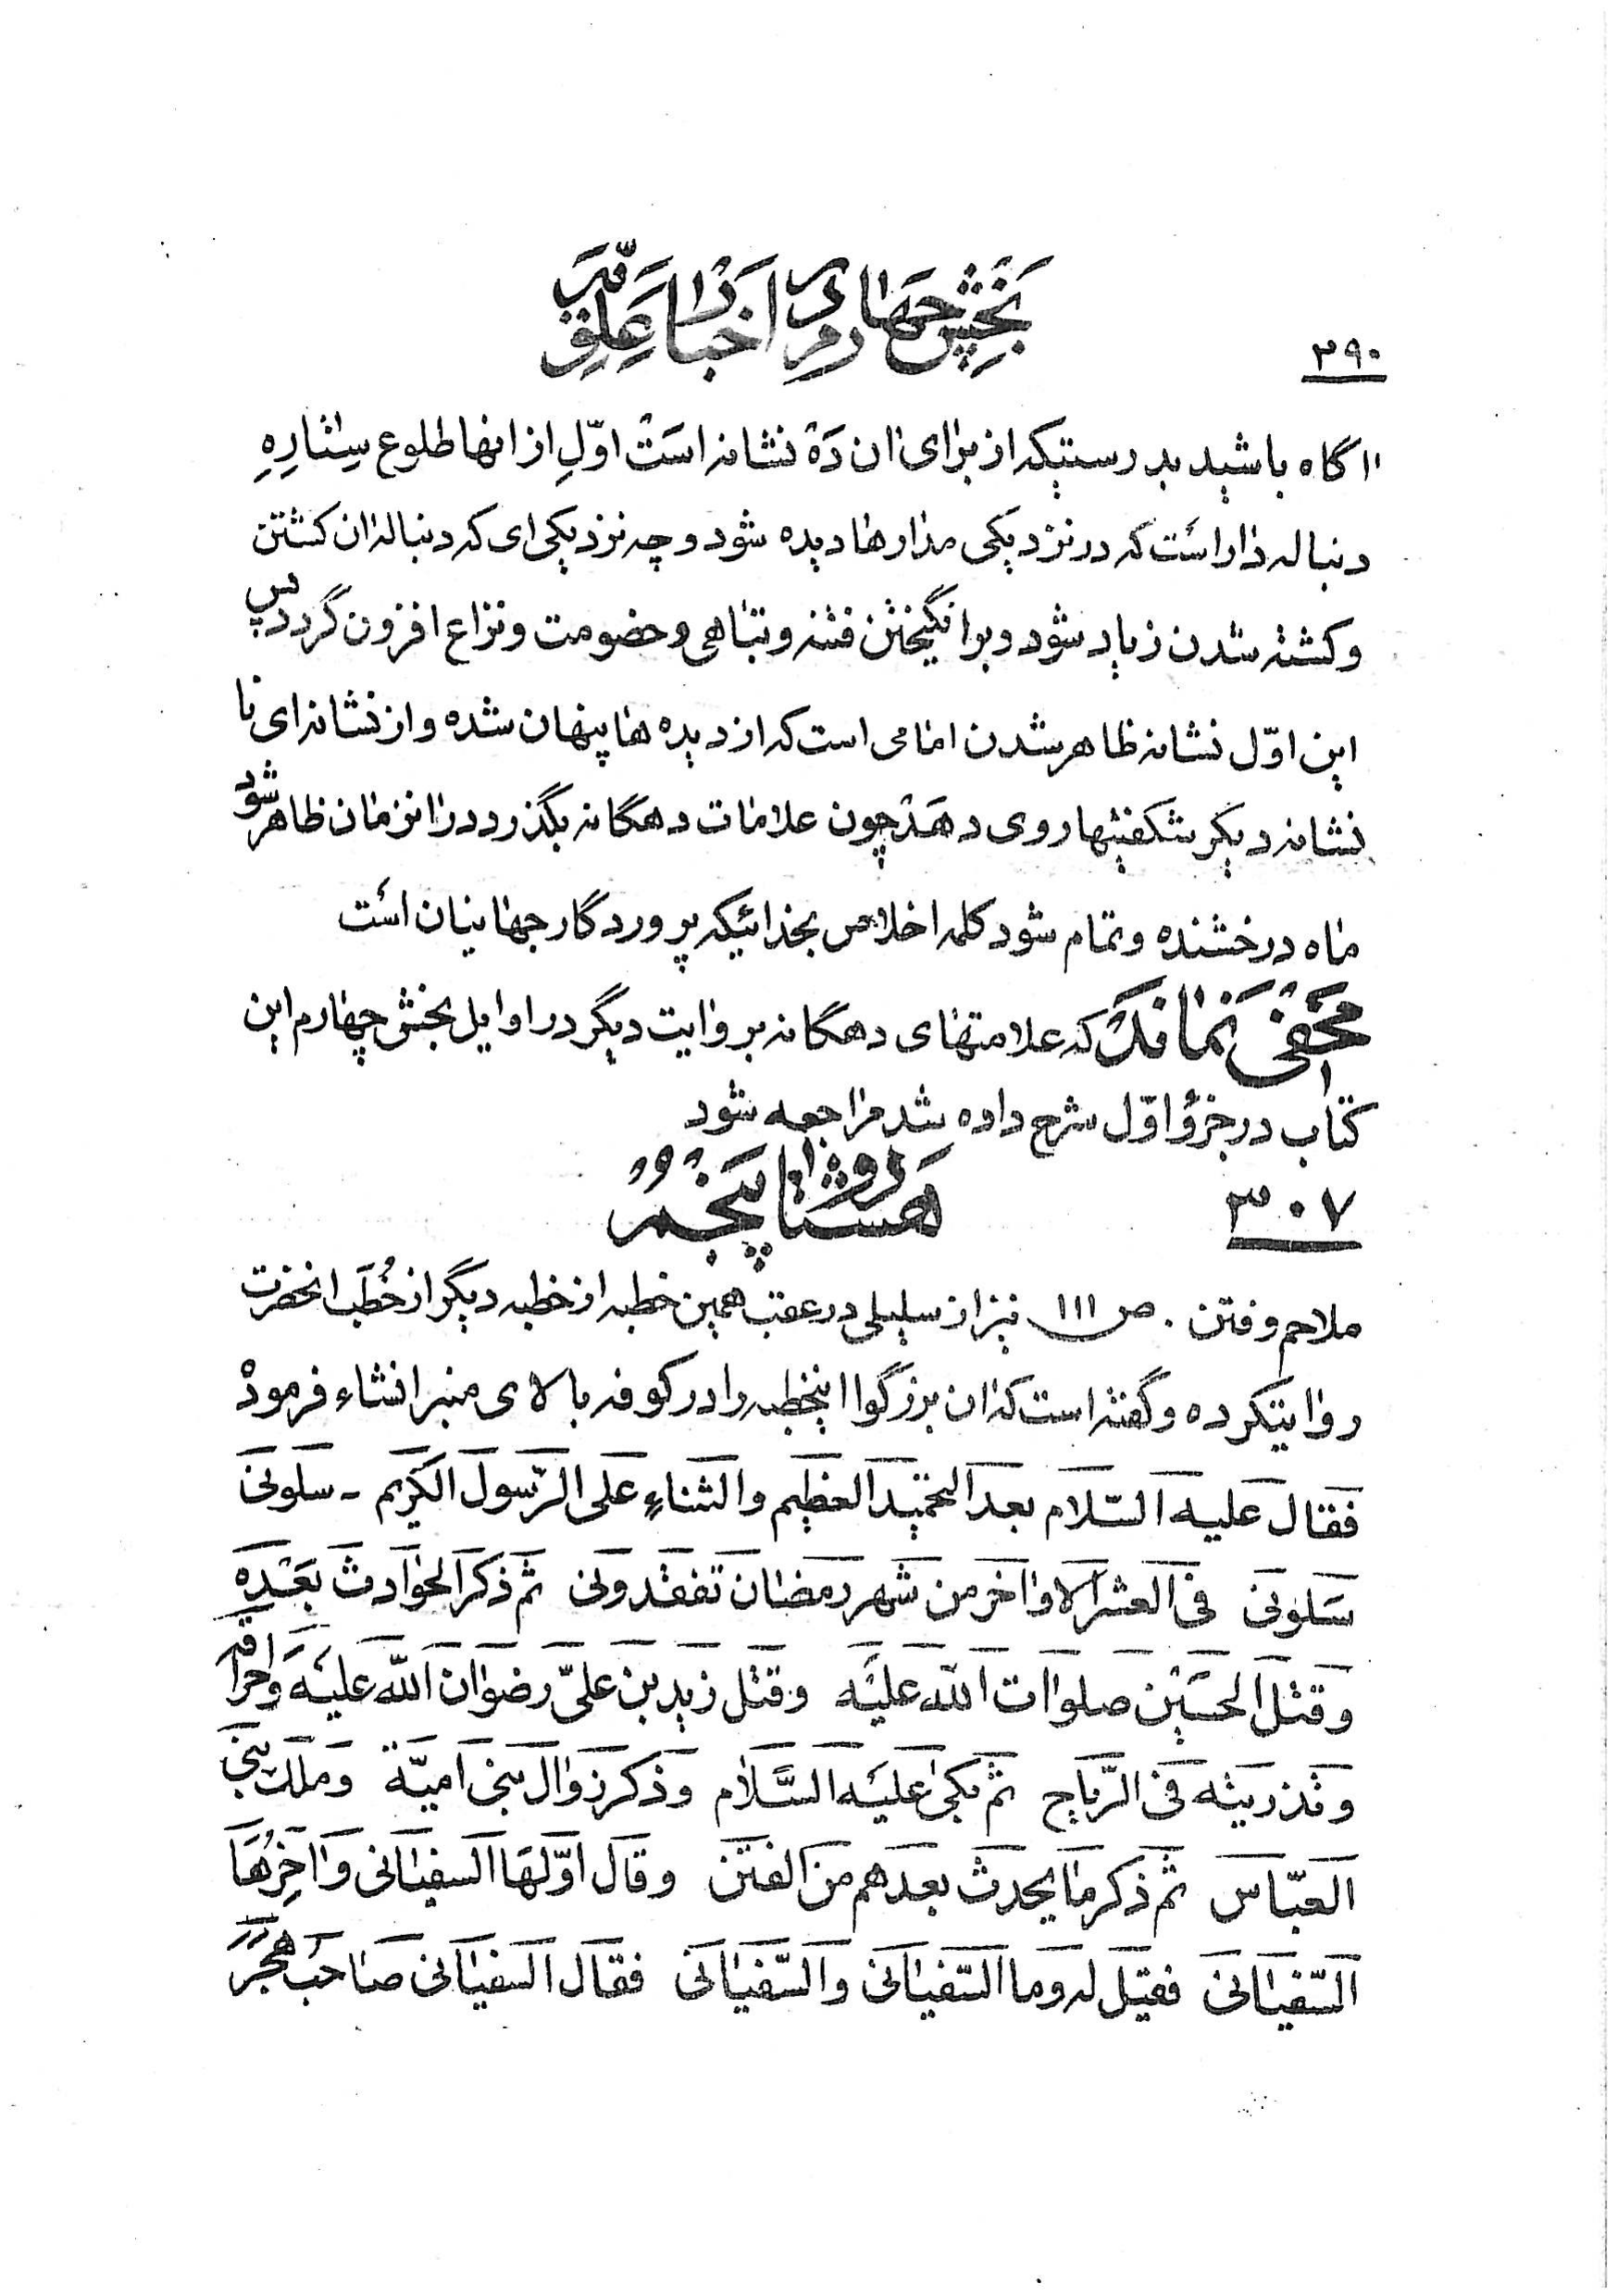 بخش چهارم در اخبار علویّه
۳۹۰
اگاه باشید بدرستیکه از برای ان ده نشانه است اوّلِ از انها طلوع ستارهِ
دنباله دار است که در نزدیکی مدارها دیده شود و چه نزدیکی ای که دنباله ان کشتن
و کشته شدن زیاد شود و برانگیختن فتنه و تباهی و خصومت و نزاع افزون گردد پس
این اوّل نشانه ظاهر شدن امامی است که از دیده ها پنهان شده و از نشانه ای تا
نشانه دیگر شگفتیها روی دهد چون علامات دهگانه بگذرد در انزمان ظاهر شود
ماه درخشنده و تمام شود کلمه اخلاص بخدائیکه پروردگار جهانیان است
مخفی نماند که علامتهای دهگانه بروایت دیگر در اوایل بخش چهارم این
کتاب در جزؤ اوّل شرح داده شد مراجعه شود
۳۰۷
هشتاد و پنجم
ملاحم و فتن . ص ۱۱۱ نیز از سلیلی در عقب همین خطبه از خطبه دیگر از خُطَب انحضرت
روایتکرده و گفته است که ان بزرگوا اینخطبه را در کوفه بالای منبر انشاء فرمود
فقال علیه السّلام بعد التحمید العظیم والثناءِ علی الرّسول الکریم - سلونی
سلونی فی العشر الاواخر من شهر رمضان تفقدونی ثم ذکر الحوادث بعده
وقتل الحسین صلوات الله علیه وقتل زید بن علیّ رضوان الله علیه واحراقه
وتذریته فی الرّیاح ثم بکی علیه السّلام وذکر زوال بنی امیّة وملک بنی
العبّاس ثم ذکر ما یحدث بعدهم من الفتن وقال اوّلها السفیانی واخرُها
السّفیانی فقیل له وما السّفیانی والسّفیانی فقال السفیانی صاحب هجر